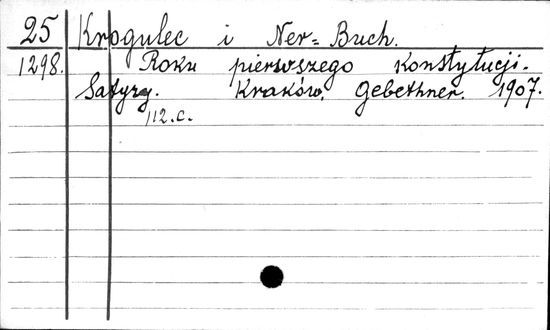 25 Krogulec i Ner-Buch.
1298. Roku pierwszego konstytucji.
Satyry. Kraków. Gebethner. 1907.
112.c.